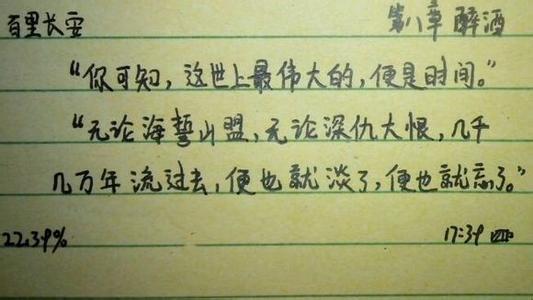 百里长安 第八章 醉酒
“你可知，这世上最伟大的，便是时间。”
“无论海誓山盟，无论深仇大恨，几千
几万年流过去，便也就淡了，便也就忘了。”
22.39% 17:39